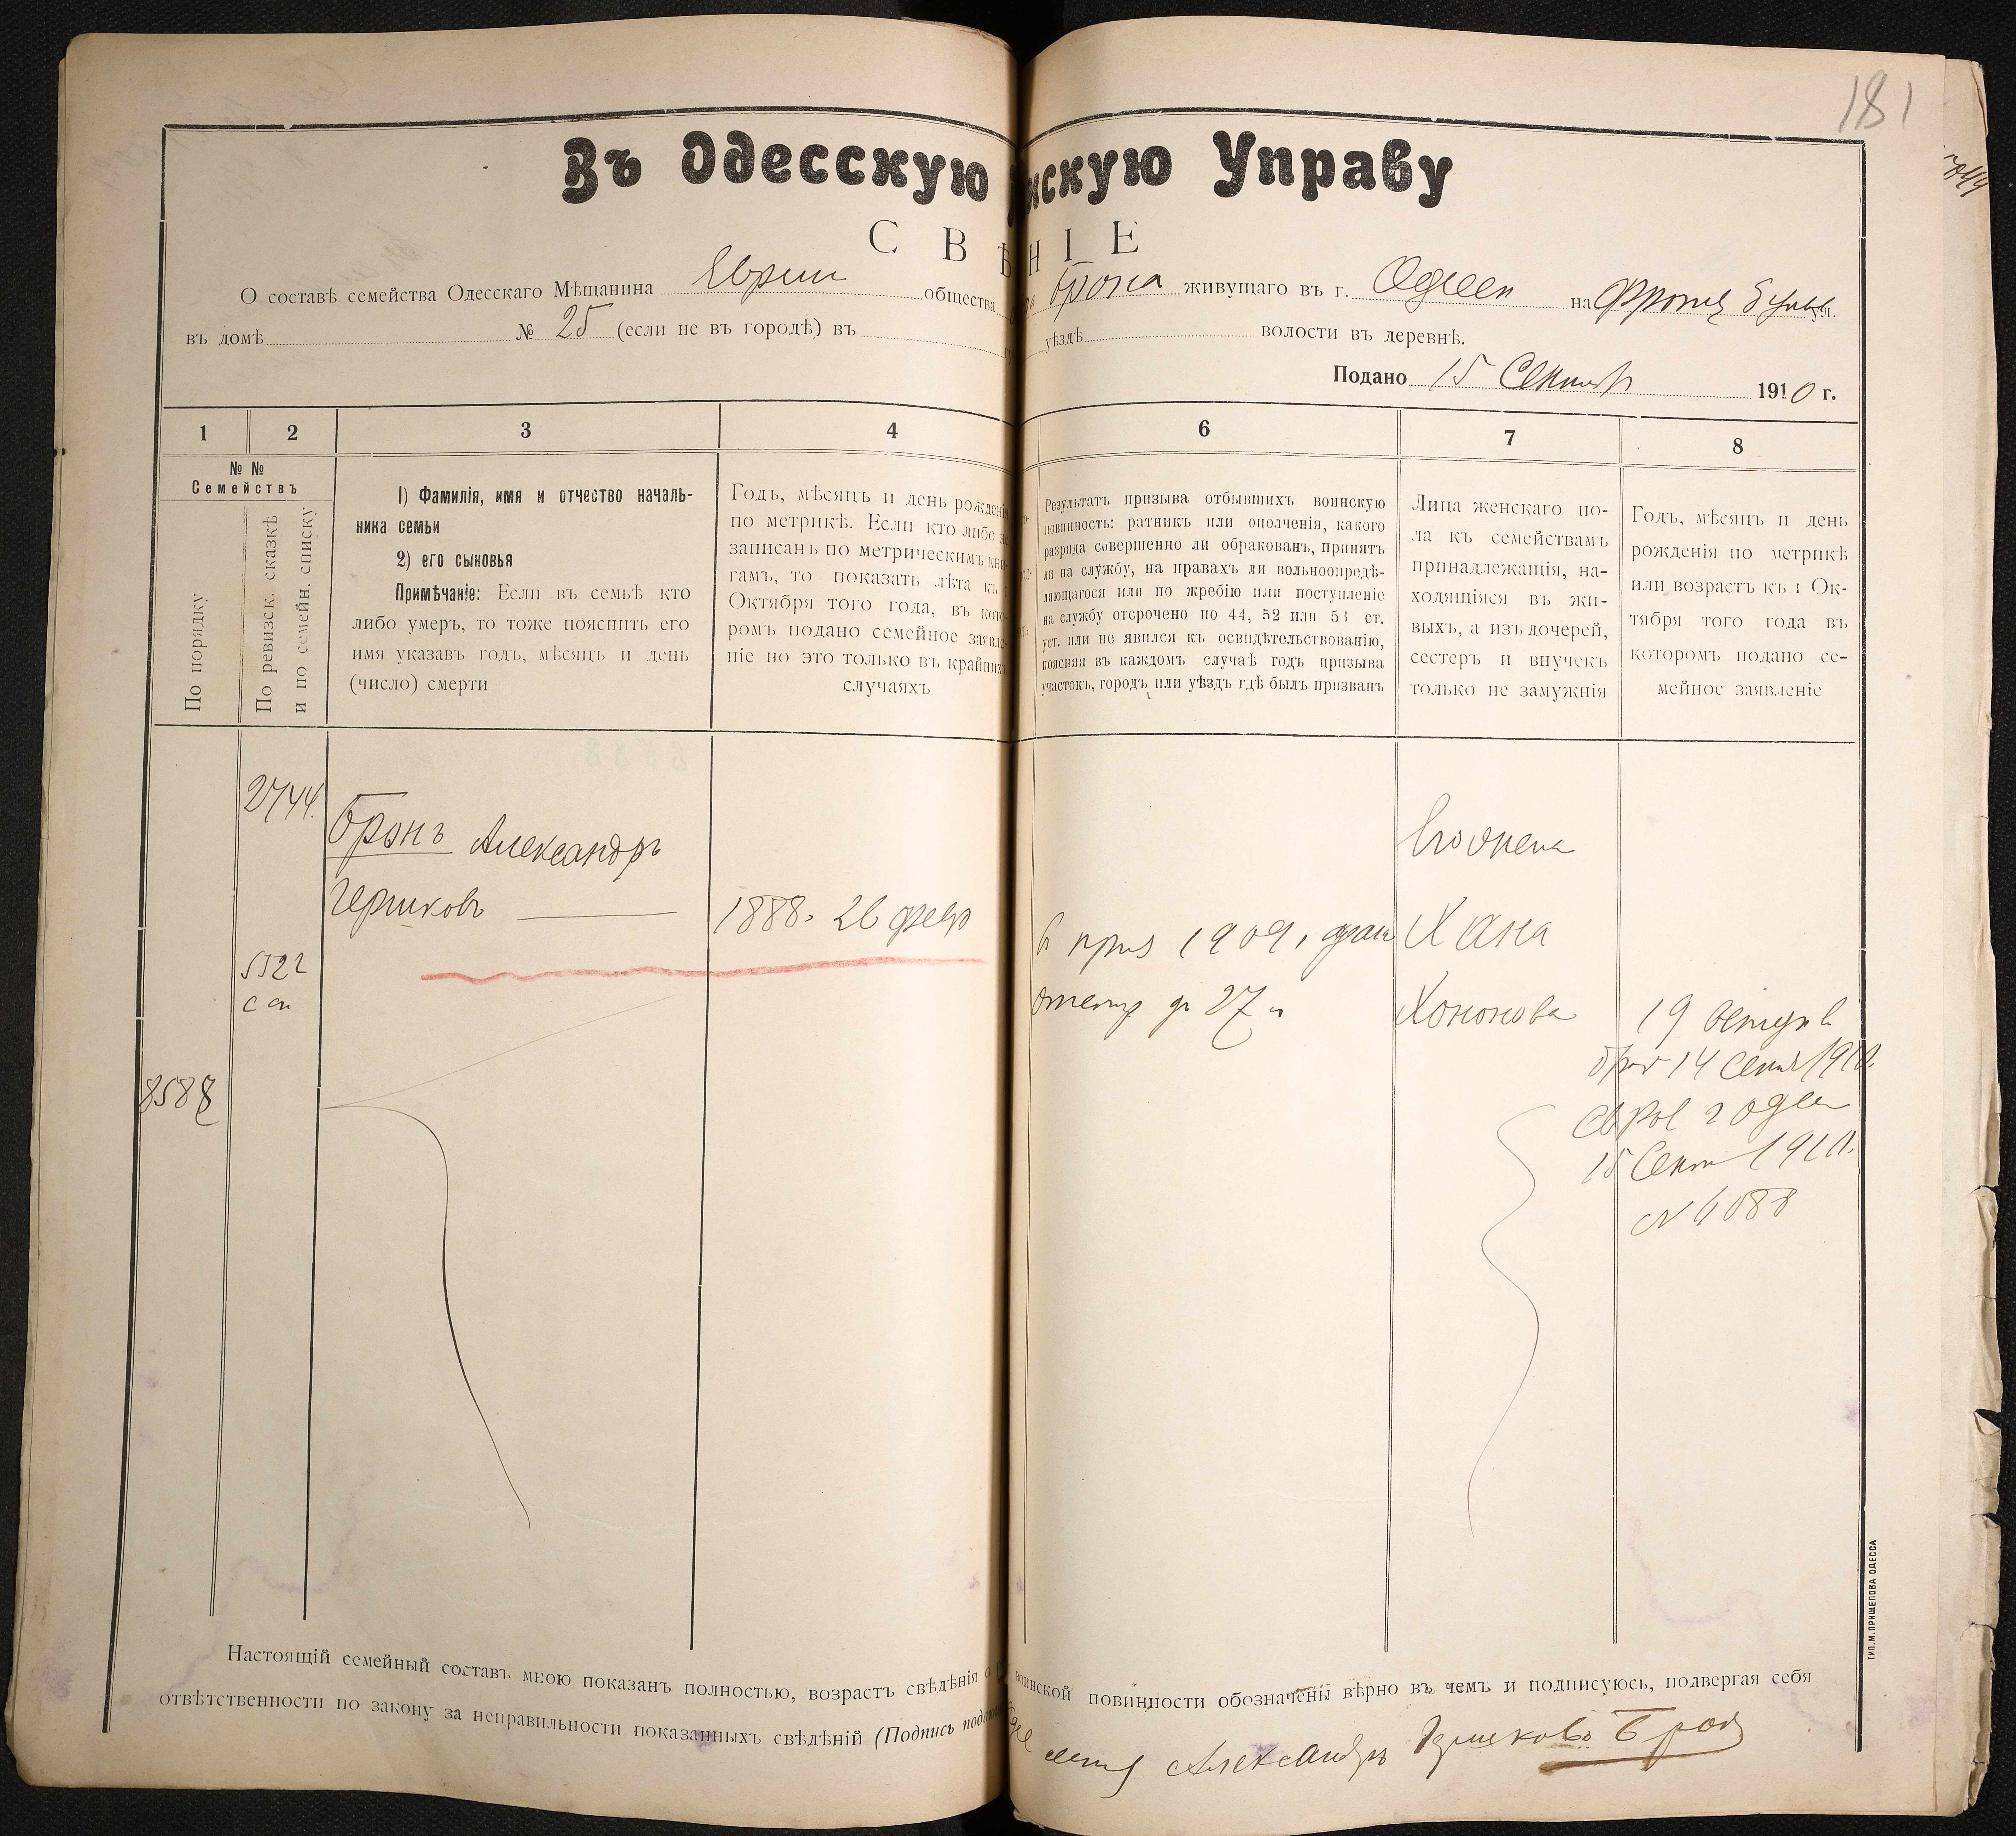 181
Въ Одесскую нскую Управу
С В Ѣ Н І Е
О составѣ семейства Одесскаго Мѣщанина Еврей общества Брона живущаго въ г. Одессѣ на Франц Бульв ул.
въ домѣ № 25 (если не въ городѣ) въ уѣздѣ волости въ деревнѣ.
Подано 15 Сентябр 1910 г.
1 2 3 4 6 7 8
№ № Семействъ
По порядку
По ревизск. сказкѣ
и по семейн. списку
1) Фамилія, имя и отчество началь-
ника семьи
2) его сыновья
Примѣчаніе: Если въ семьѣ кто
либо умеръ, то тоже пояснить его
имя указавъ годъ, мѣсяцъ и день
(число) смерти
Годъ, мѣсяцъ и день рожденія
по метрикѣ. Если кто либо не
записанъ по метрическимъ кни-
гамъ, то показать лѣта къ 1
Октября того года, въ кото-
ромъ подано семейное заявле-
ніе но это только въ крайнихъ
случаяхъ
Результатъ призыва отбывшихъ воинскую
повинность: ратникъ или ополченія, какого
разряда совершенно ли обракованъ, принятъ
ли на службу, на правахъ ли вольноопредѣ-
ляющагося или по жребію или поступленіе
на службу отсрочено по 44, 52 или 53 ст.
уст. или не явился къ освидѣтельствованію,
поясняя въ каждомъ случаѣ годъ призыва
участокъ, городъ или уѣздъ гдѣ былъ призванъ
Лица женскаго по-
ла къ семействамъ
принадлежащія, на-
ходящіяся въ жи-
выхъ, а изъ дочерей,
сестеръ и внучекъ
только не замужнія
Годъ, мѣсяцъ и день
рожденія по метрикѣ
или возрастъ къ 1 Ок-
тября того года въ
которомъ подано се-
мейное заявленіе
2744.
Бронъ Александръ
Гершковъ
1888. 26 февр
5322
с сп
8588
в приз 1909,
отстр до 27 л
Его жена
Хана
Хононова
19 вступ в
брак 14 Сент 1910.
св рав г Одес
15 Сент 1910.
N 4088
Настоящій семейный составъ мною показанъ полностью, возрастъ свѣдѣнія о воинской повинности обозначены вѣрно въ чемъ и подписуюсь, подвергая себя
отвѣтственности по закону за неправильности показанныхъ свѣдѣній (Подпись
Александръ Гершковъ Брон
ТИП. М. ПРИЩЕПОВА ОДЕССА